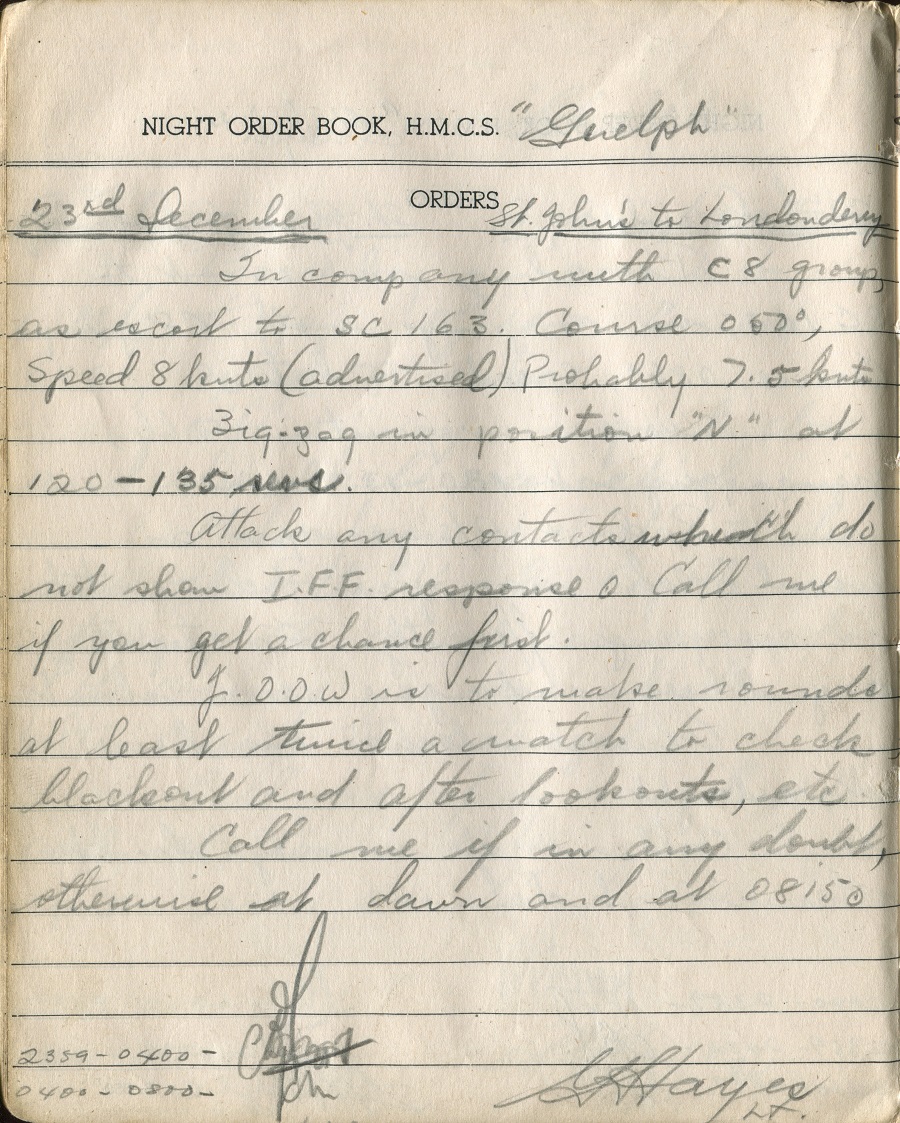 NIGHT ORDER BOOK, H.M.C.S. "Guelph"
ORDERS
23rd December St. John's to Londonderry
In company with C8 group,
as escort to SC 163. Course 050°,
Speed 8 knts (advertised) Probably 7.5 knts
Zig-zag in position "N" at
120 – 135 revs.
Attack any contacts which do
not show I.F.F. response. Call me
if you get a chance first.
J.O.O.W is to make rounds
at least twice a watch to check
blackout and after lookouts, etc.
Call me if in any doubt,
otherwise at dawn and at 0815
2359 - 0400 -
0400 - 0800 -
Hayes
Lt.